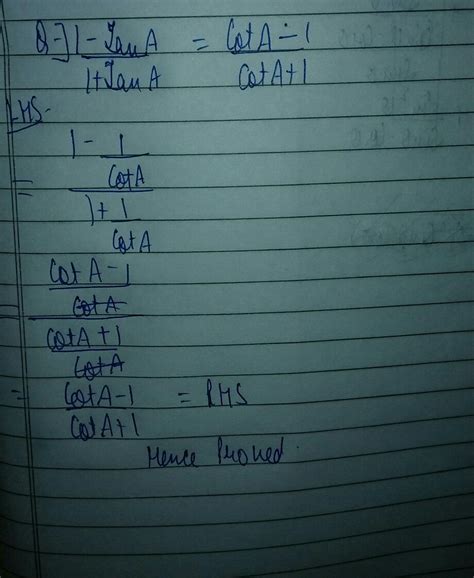 Q-] 1 - TanA / 1 + TanA = CotA - 1 / CotA + 1
LHS-
= 1 - 1/CotA
1 + 1/CotA
= CotA - 1 / CotA
CotA + 1 / CotA
= CotA - 1 / CotA + 1 = RHS
Hence Proved.